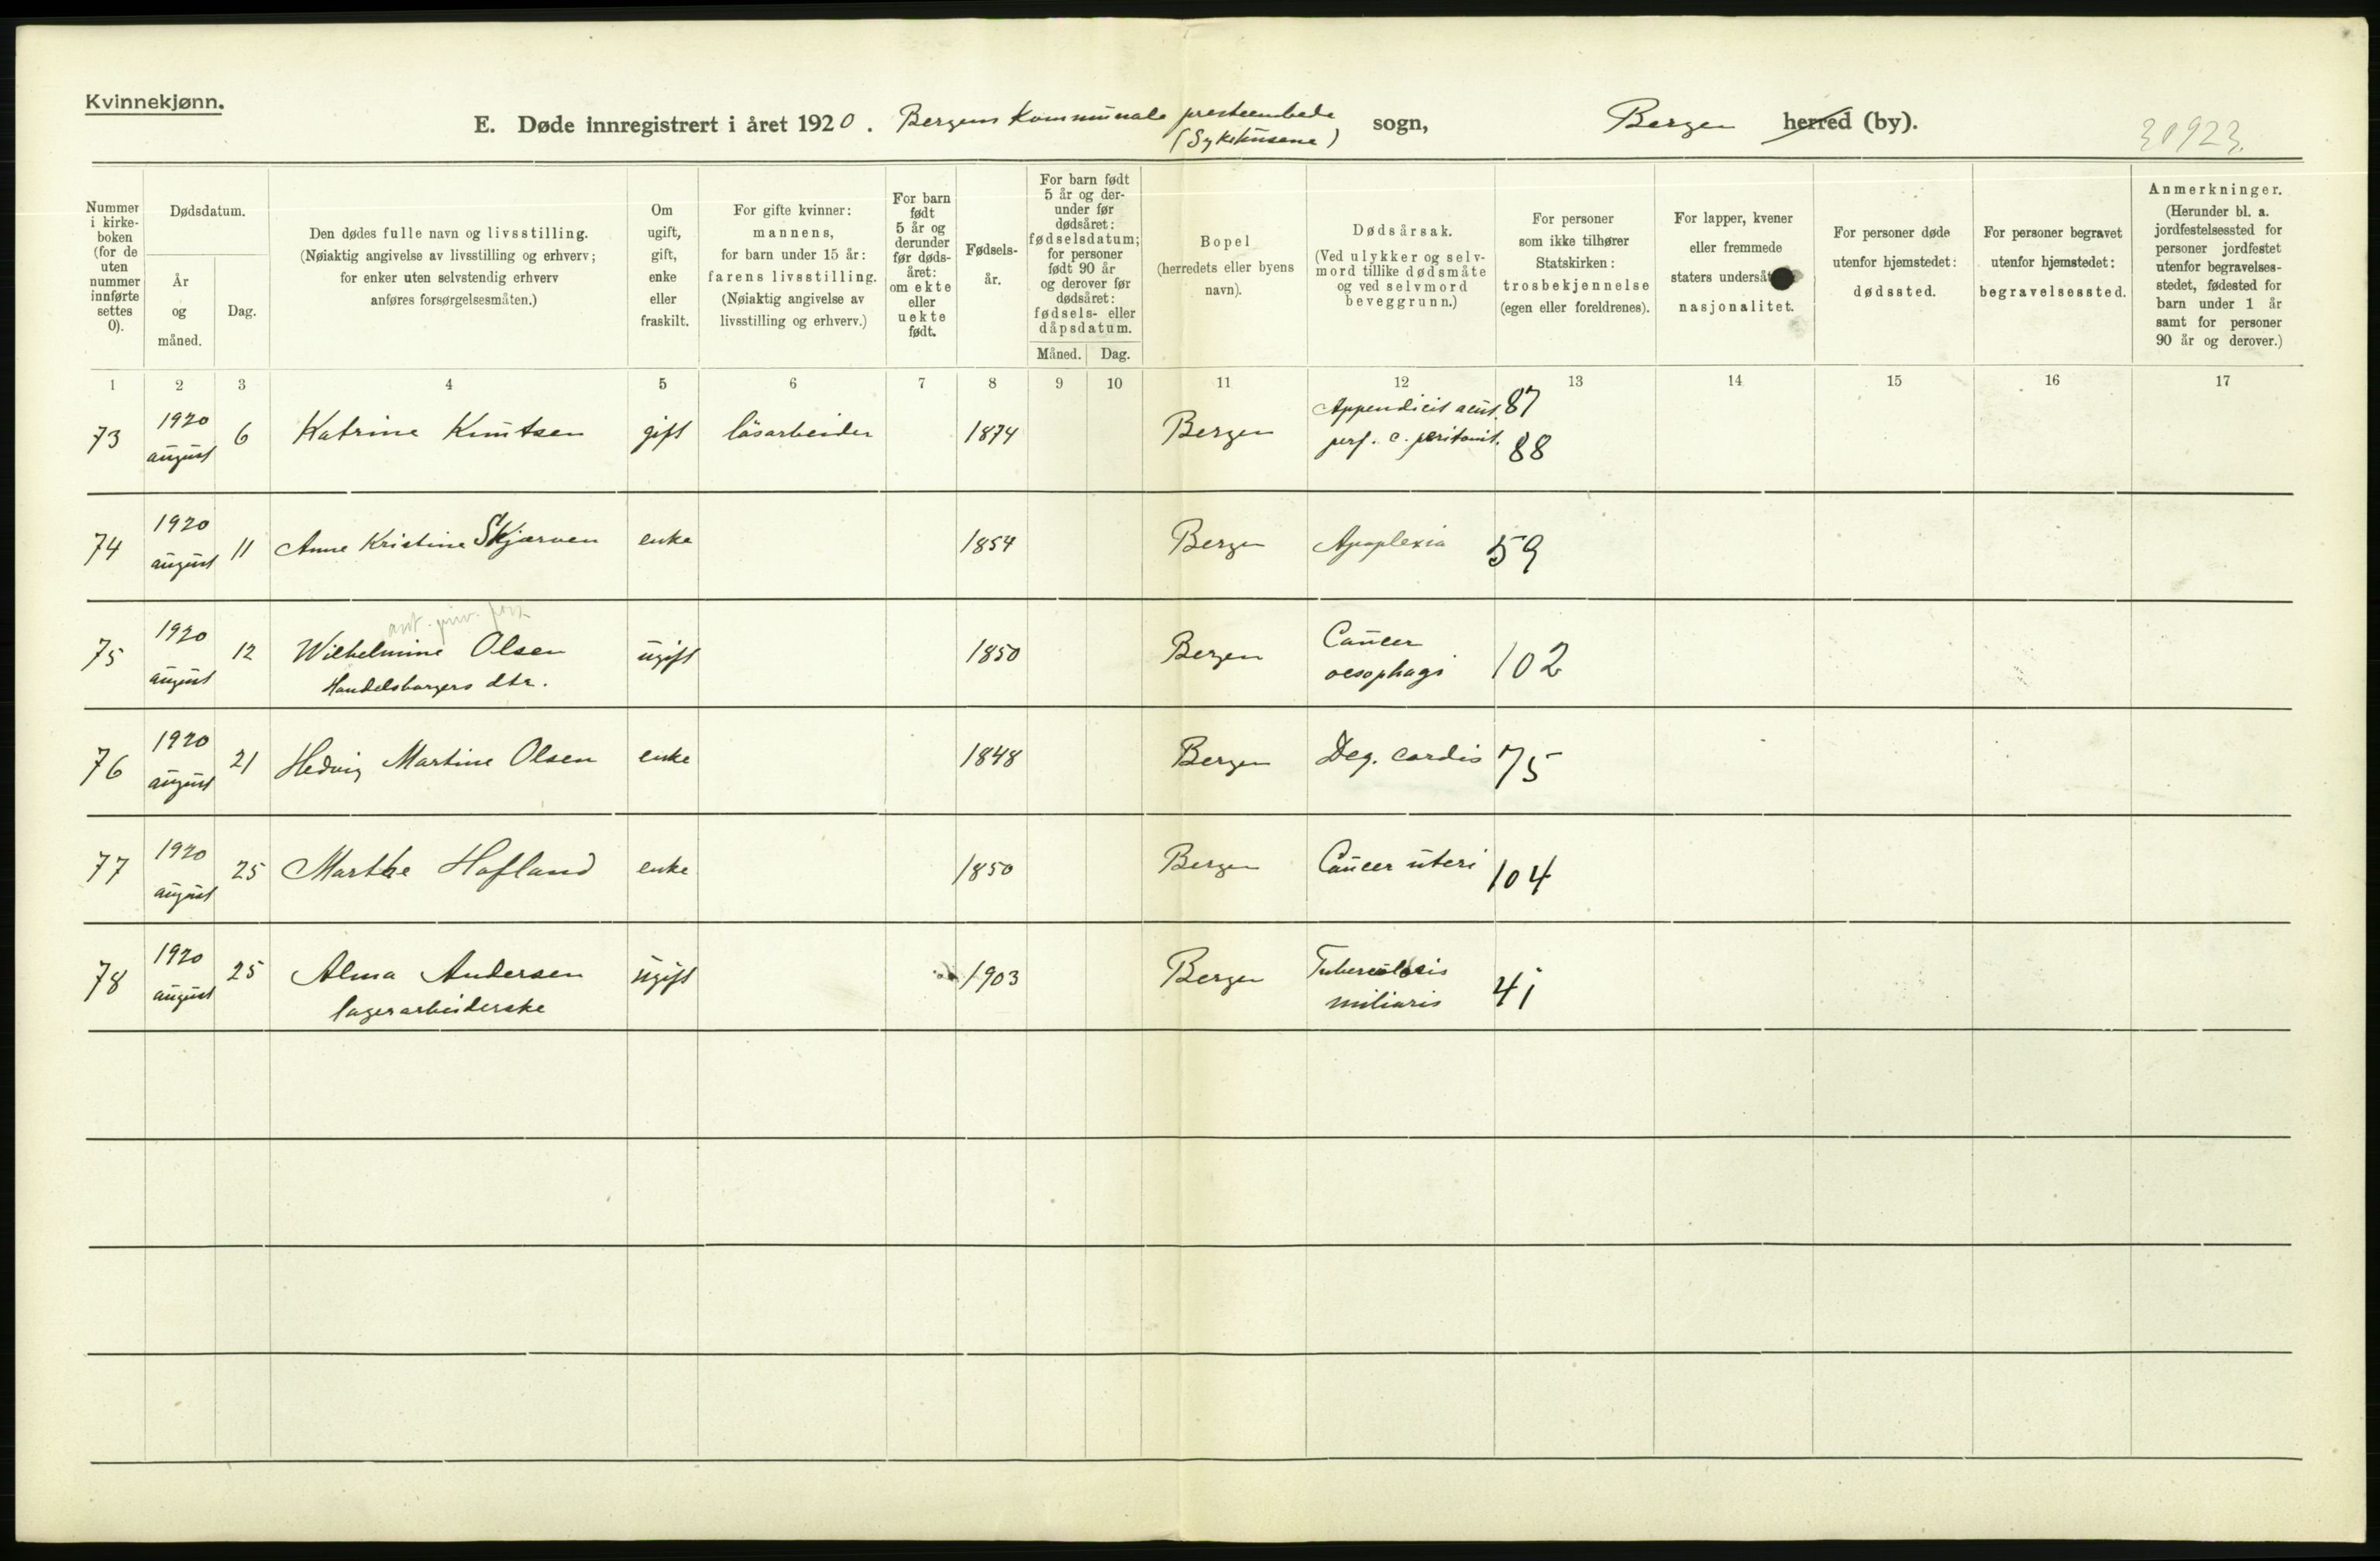 Kvinnekjønn.
E. Døde innregistrert i året 1920. Bergens Kommunale presteembede sogn, Bergen herred (by).
(Sykehusene)
30923.
Nummer i kirke-boken (for de uten nummer innførte settes 0).
Dødsdatum.
År og måned.
Dag.
Den dødes fulle navn og livsstilling.
(Nøiaktig angivelse av livsstilling og erhverv;
for enker uten selvstendig erhverv
anføres forsørgelsesmåten.)
Om
ugift,
gift,
enke
eller
fraskilt.
For gifte kvinner:
mannens,
for barn under 15 år:
farens livsstilling.
(Nøiaktig angivelse av
livsstilling og erhverv.)
For barn
født
5 år og
derunder
før døds-
året:
om ekte
eller
uekte
født.
Fødsels-
år.
For barn født
5 år og der-
under før
dødsåret:
fødselsdatum;
for personer
født 90 år
og derover før
dødsåret:
fødsels- eller
dåpsdatum.
Måned. Dag.
Bopel
(herredets eller byens
navn).
Dødsårsak.
(Ved ulykker og selv-
mord tillike dødsmåte
og ved selvmord
beveggrunn.)
For personer
som ikke tilhører
Statskirken:
trosbekjennelse
(egen eller foreldrenes).
For lapper, kvener
eller fremmede
staters undersåt
nasjonalitet.
For personer døde
utenfor hjemstedet:
dødssted.
For personer begravet
utenfor hjemstedet:
begravelsessted.
Anmerkninger.
(Herunder bl. a.
jordfestelsessted for
personer jordfestet
utenfor begravelses-
stedet, fødested for
barn under 1 år
samt for personer
90 år og derover.)
1 2 3 4 5 6 7 8 9 10 11 12 13 14 15 16 17
73 1920 august 6 Katrine Knutsen gift løsarbeider 1874 Bergen Appendicit acut. 87
perf. c. peritonit. 88
74 1920 august 11 Anne Kristine Skjærven enke 1854 Bergen Apoplexia 59
75 1920 august 12 Wilhelmine Olsen ugift 1850 Bergen Cancer
Handelsborgers dtr. oesophagi 102
76 1920 august 21 Hedvig Martine Olsen enke 1848 Bergen Deg. cordis 75
77 1920 august 25 Marthe Hafland enke 1850 Bergen Cancer uteri 104
78 1920 august 25 Alma Andersen ugift 1903 Bergen Tuberculosis
lagerarbeiderske miliaris 41